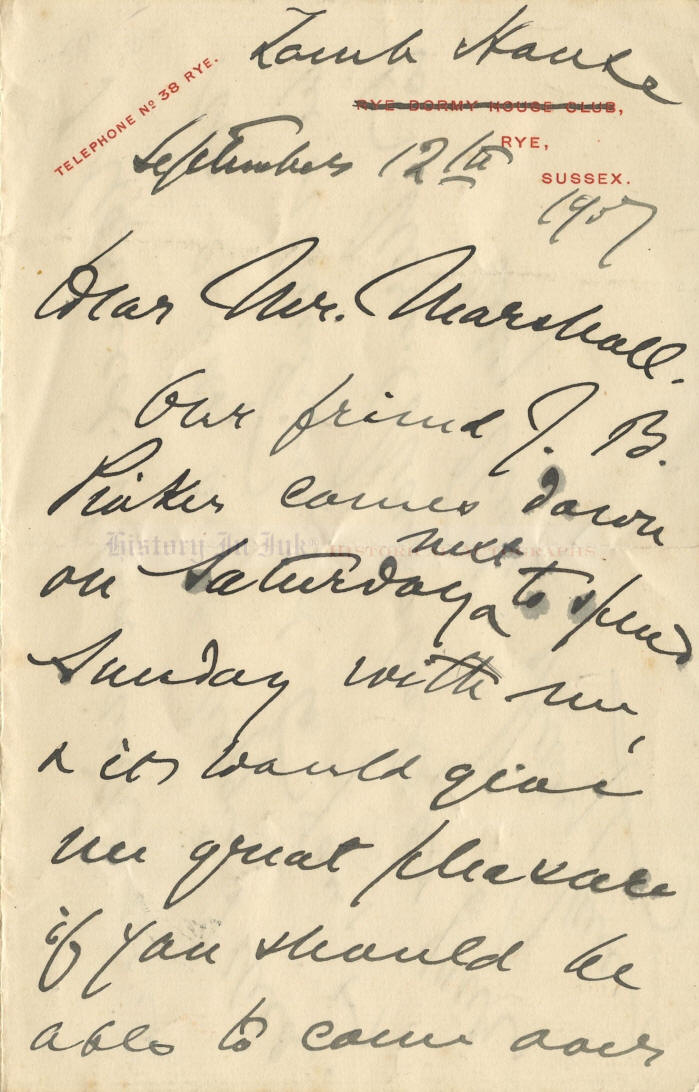 Lamb House
TELEPHONE Nº 38 RYE.
RYE DORMY HOUSE CLUB,
RYE,
SUSSEX.
September 12th
1907
Dear Mr. Marshall.
Our friend J. B.
Pinker comes down
next
on Saturday to spend
History In Ink HISTORICAL AUTOGRAPHS
Sunday with me,
& it would give
me great pleasure
if you should be
able to come over